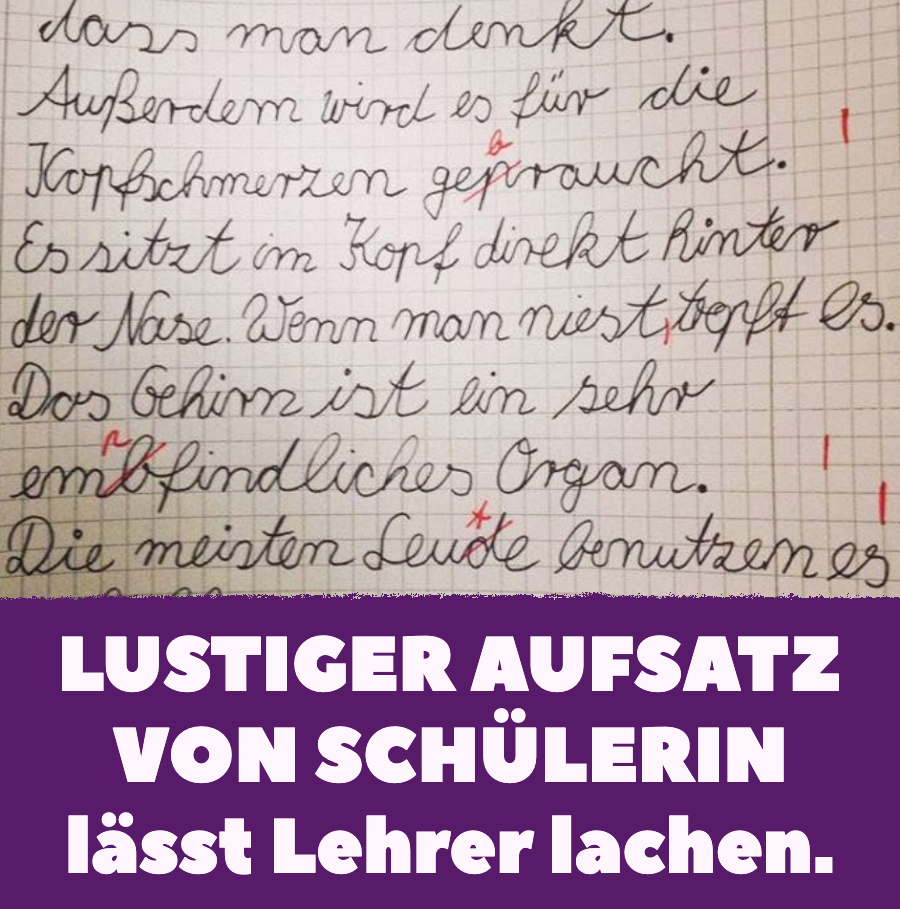 dass man denkt.
Außerdem wird es für die
b
Kopfschmerzen gepraucht.
Es sitzt im Kopf direkt hinter
der Nase. Wenn man niest, tropft es.
Das Gehirn ist ein sehr
p
embfindliches Organ.
t
Die meisten Leude benutzen es
LUSTIGER AUFSATZ
VON SCHÜLERIN
lässt Lehrer lachen.